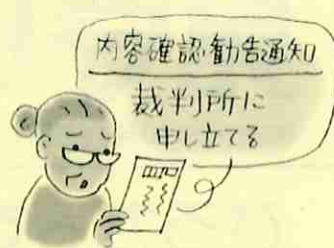 内容確認勧告通知
裁判所に
申し立てる